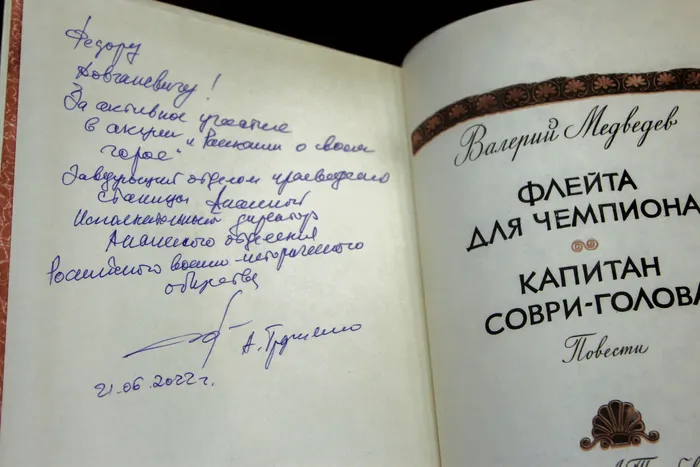 Федору
Довганевичу!
За активное участие
в акции "Расскажи о своем
герое"
Заведующий отделом краеведения
станицы Анапской
Исполнительный директор
Анапского отделения
Российского военно-исторического
общества
А.
21.06.2022г.
Валерий Медведев
ФЛЕЙТА
ДЛЯ ЧЕМПИОНА
КАПИТАН
СОВРИ-ГОЛОВА
Повести